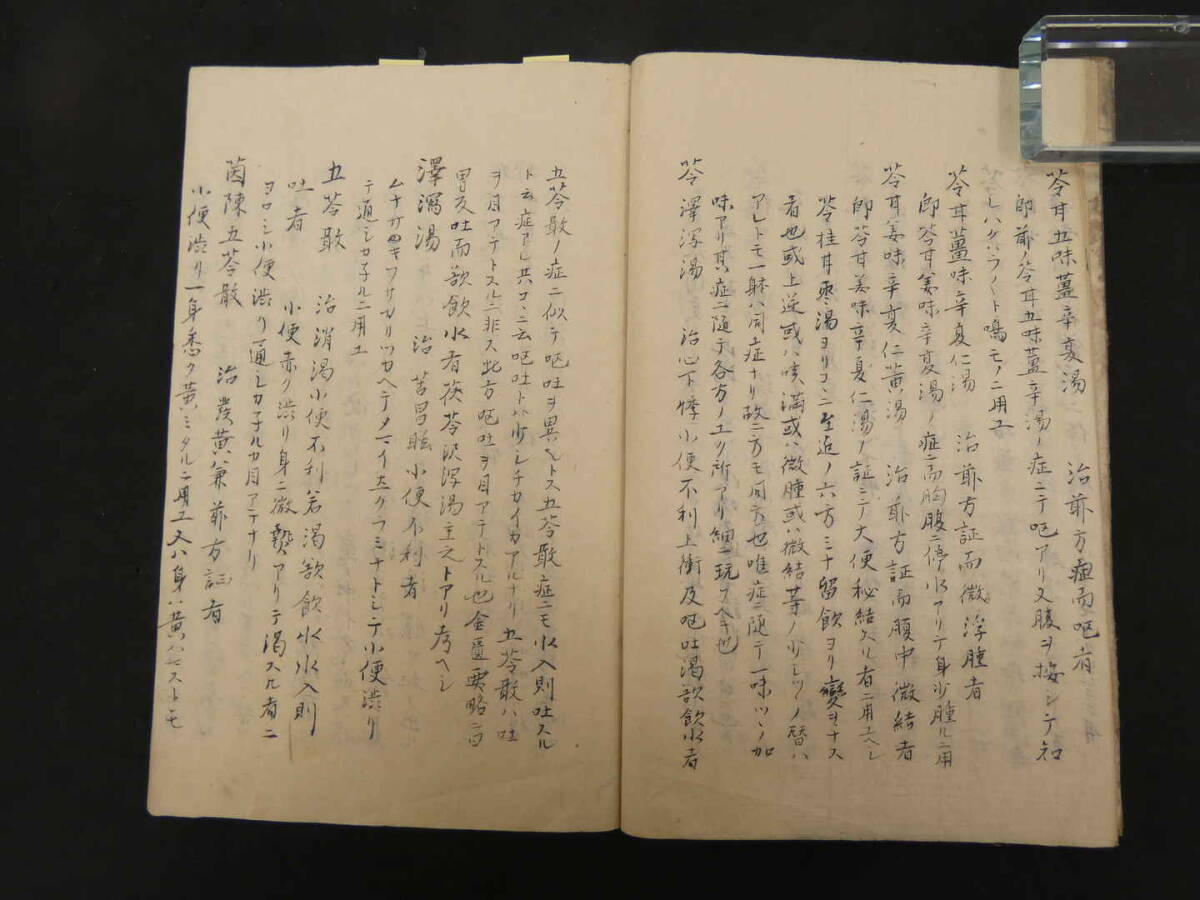 苓甘五味薑辛夏湯　治前方症而嘔者
即前ノ苓甘五味薑辛湯ノ症ニテ嘔アリ又腹ヲ按シテ知
レハ ト鳴モノニ用ユ
苓甘薑味辛夏仁湯　治前方証而微浮腫者
即苓甘姜味辛夏湯ノ症ニ而胸腹ニ停水アリテ身少腫ルニ用
苓甘姜味辛夏仁黄湯　治前方証而腹中微結者
即苓甘姜味辛夏仁湯ノ証ニテ大便秘結スル者ニ用ユヘシ
苓桂甘棗湯ヨリコヽニ至迠ノ六方ミナ留飲ヨリ變ヲナス
者也或ハ上逆或ハ咳満或ハ微腫或ハ微結等ノ少シツヽノ替ハ
アレトモ一躰ハ同症ナリ故ニ方モ同方也唯症ニ随テ一味ツヽノ加
味アリ其症ニ随テ各方ノユク所アリ細ニ玩フヘキ也
苓澤瀉湯　治心下悸小便不利上衝及嘔吐渇欲飲水者
五苓散ノ症ニ似テ嘔吐ヲ異ヘトス五苓散症ニモ水入則吐スル
ト云症アレ共コヽニ云嘔吐トハ少シチカイカアルナリ五苓散ハ吐
ヲ目アテトスルニ非ス此方嘔吐ヲ目アテトスル也金匱要略ニ曰
胃反吐而欲飲水者茯苓沢瀉湯主之トアリ考ヘシ
澤瀉湯　治苦冒眩小便不利者
ムナサキフサカリツカヘテメマイ立クラミナトシテ小便渋リ
テ通シカ子ルニ用ユ
五苓散　治消渇小便不利若渇欲飲水水入則
吐者　小便赤ク渋リ身ニ微熱アリテ渇スル者ニ
ヨロシ小便渋リ通シカ子ルカ目アテナリ
茵陳五苓散　治發黄兼前方証者
小便渋リ一身悉ク黄ミタルニ用ユ又ハ身ハ黄ハセストモ